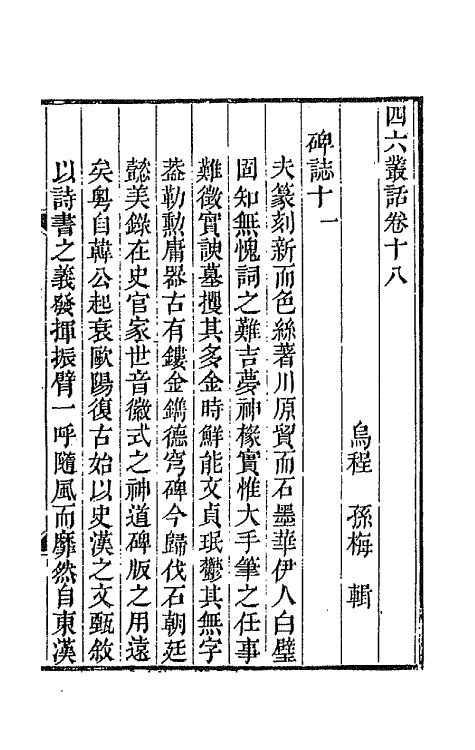 四六叢話卷十八
烏程　孫梅　輯
碑誌十一
夫篆刻新而色絲著川原貿而石墨華伊人白璧
固知無愧詞之難吉夢神椽實惟大手筆之任事
難徵實諛墓攫其多金時鮮能文貞珉鬱其無字
葢勒勲庸器古有鏤金鐫德穹碑今歸伐石朝廷
懿美錄在史官家世音徽式之神道碑版之用遠
矣粵自韓公起衰歐陽復古始以史漢之文甄敘
以詩書之義發揮振臂一呼隨風而靡然自東漢